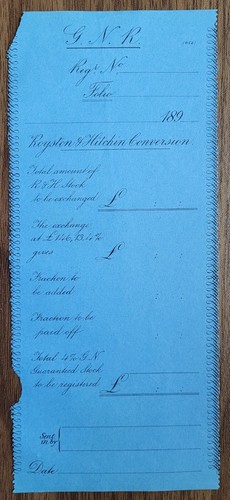 G. N. R.
Regd. No
Folio
189
Royston & Hitchin Conversion.
Total amount of
R & H Stock
to be exchanged £
The exchange
at £
gives £
Fraction to
be added
Fraction to be
paid off
Total 4% G.N.
Guaranteed Stock
to be registered £
Sent
in by
Date